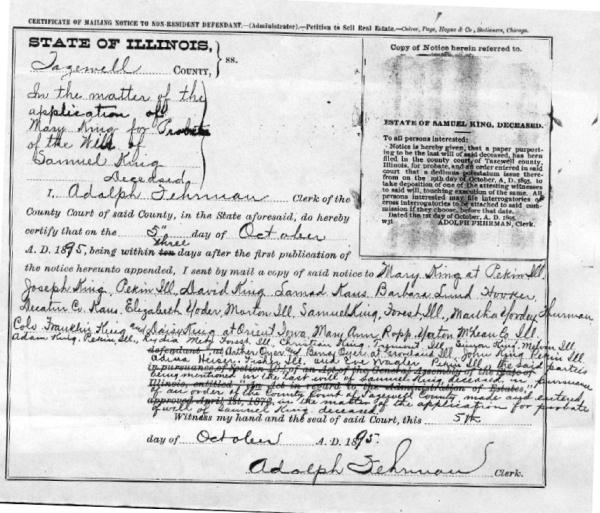 CERTIFICATE OF MAILING NOTICE TO NON-RESIDENT DEFENDANT.—(Administrator).—Petition to Sell Real Estate.—Culver, Page, Hoyne & Co., Stationers, Chicago.
STATE OF ILLINOIS,
Tazewell COUNTY, } ss.
In the matter of the
application of
Mary King for Probate
of the Will of
Samuel King
Deceased
Copy of Notice herein referred to.
ESTATE OF SAMUEL KING, DECEASED.
To all persons interested:
Notice is hereby given, that a paper purport-
ing to be the last will of said deceased, has been
filed in the county court of Tazewell county,
Illinois, for probate, and an order entered in said
court that a dedimus potestatum issue there-
from on the 19th day of October, A. D. 1895, to
take deposition of one of the attesting witnesses
to said will, touching execution of the same. All
persons interested may file interrogatories or
cross interrogatories to be attached to said com-
mission if they choose, before that date.
Dated the 1st day of October, A. D. 1895.
ADOLPH FEHRMAN, Clerk.
I, Adolph Fehrman Clerk of the
County Court of said County, in the State aforesaid, do hereby
certify that on the 5" day of October
three
A. D. 1895, being within ten days after the first publication of
the notice hereunto appended, I sent by mail a copy of said notice to Mary King at Pekin Ill.
Joseph King, Pekin Ill, David King, Kaus, Barbara Hooker,
Decatur Co. Kaus, Elizabeth Yoder, Morton Ill, Samuel King, Forest Ill, Martha Thurman
Colo. Franklin King and Daisy King at Orient Iowa, Mary Ann Ropp Ill,
Adam King, Pekin Ill, Lydia Forest Ill, Christian King, Tremont Ill, Simon King, Ill
defendant, at Arthur and at Ill, John King Pekin Ill.
Fisher Ill, and Eve Pekin Ill, the said parties
in pursuance of Section of an Act of the General Assembly of the State of
being mentioned in the last will of Samuel King, deceased, in pursuance
Illinois, entitled "An Act in regard to the administration of Estates,"
of an order of the County Court of Tazewell County, made and entered
approved April 1st, 1872. in the matter of the application for probate
of will of Samuel King, deceased.
Witness my hand and the seal of said Court, this 5th
day of October A. D. 1895.
Adolph Fehrman Clerk.